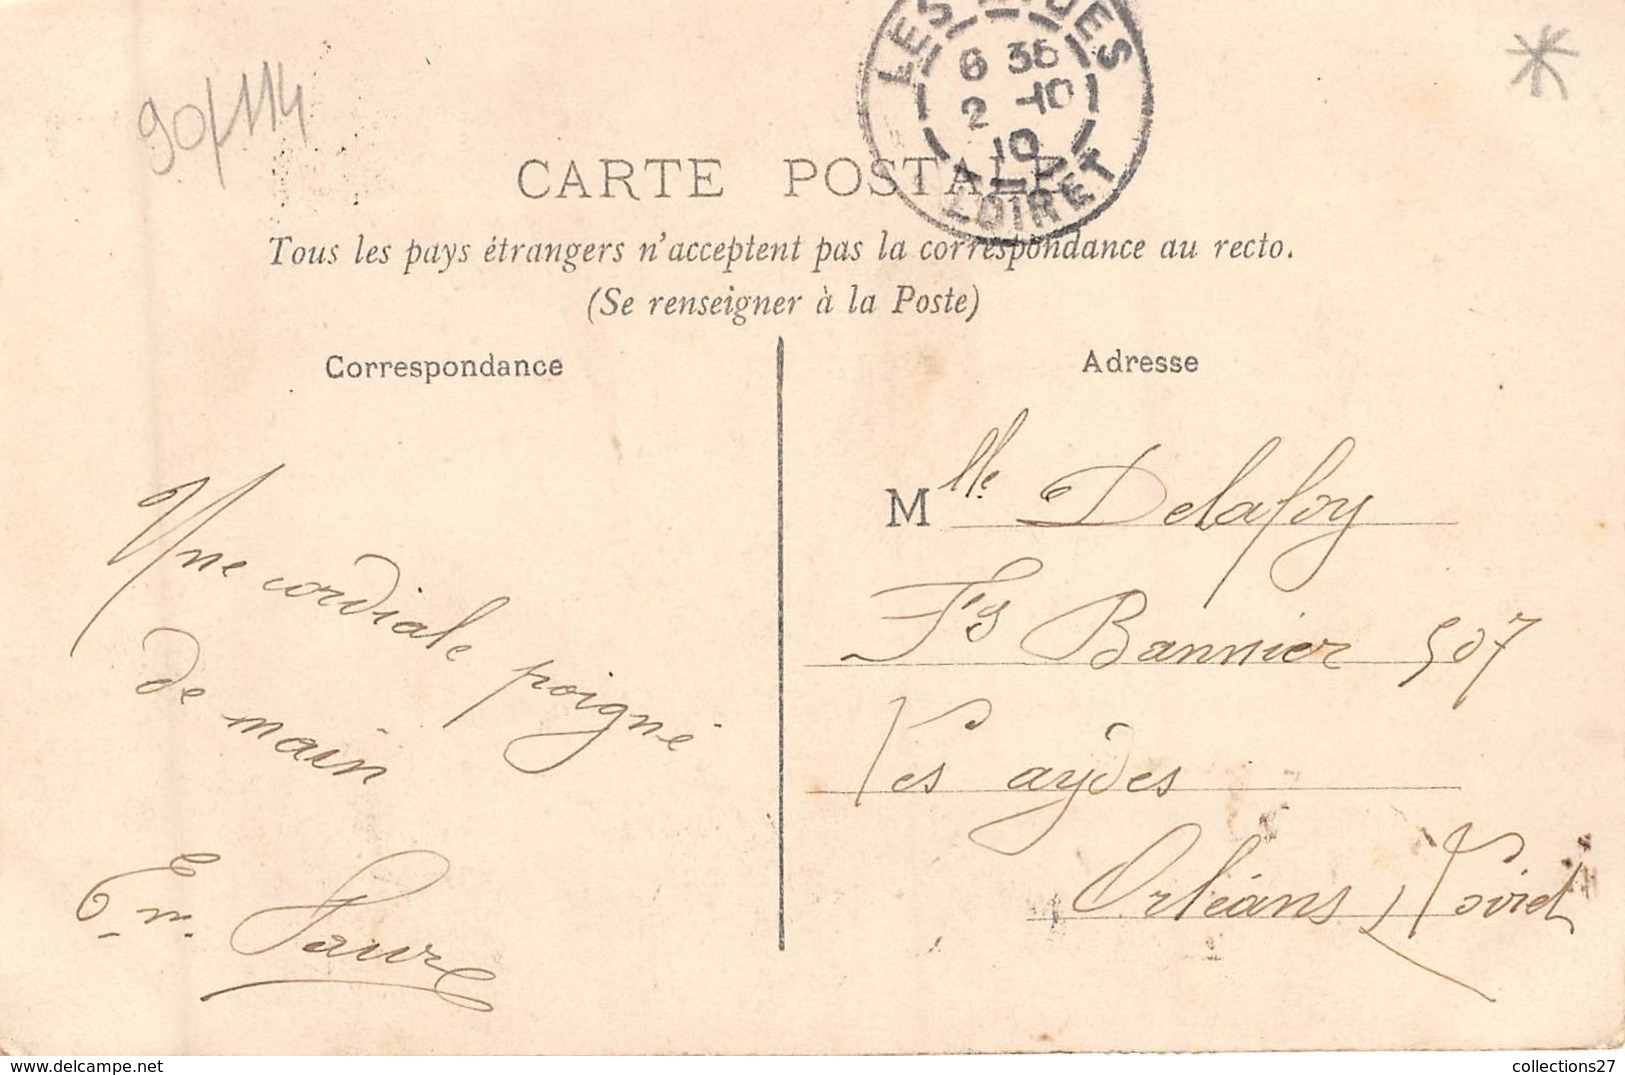 90/114
LES AYDES
6 35
2 -10
10
LOIRET
CARTE POSTALE
Tous les pays étrangers n'acceptent pas la correspondance au recto.
(Se renseigner à la Poste)
Correspondance
Une cordiale poigné
de main
Em. Favre
Adresse
Mlle Delafoy
Fg Bannier 507
Les aydes
Orléans Loiret
collections27